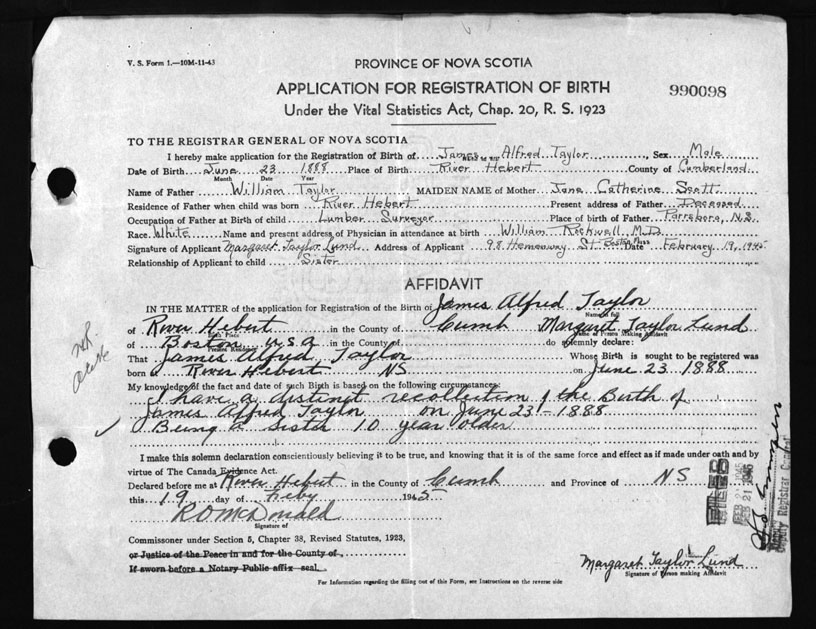 V. S. Form 1.—10M-11-43
PROVINCE OF NOVA SCOTIA
APPLICATION FOR REGISTRATION OF BIRTH
990098
Under the Vital Statistics Act, Chap. 20, R. S. 1923
TO THE REGISTRAR GENERAL OF NOVA SCOTIA
I hereby make application for the Registration of Birth of James Alfred Taylor, Sex Male
Date of Birth June 23 1888 Place of Birth River Hebert County of Cumberland
Month Date Year
Name of Father William Taylor MAIDEN NAME of Mother Jane Catherine Scott
Residence of Father when child was born River Hebert Present address of Father Deceased
Occupation of Father at Birth of child Lumber Surveyor Place of birth of Father Parrsboro, N.S.
Race White Name and present address of Physician in attendance at birth William Rockwell, M.D.
Signature of Applicant Margaret Taylor Lund Address of Applicant 98 Hemenway St. Boston Mass Date February 19, 1945
Relationship of Applicant to child Sister
AFFIDAVIT
IN THE MATTER of the application for Registration of the Birth of James Alfred Taylor
Name in full
of River Hebert in the County of Cumb Margaret Taylor Lund
Birth Place Name of Person Making Affidavit
of Boston U.S.A in the County of do solemnly declare:
Present Residence
That James Alfred Taylor Whose Birth is sought to be registered was
born at River Hebert NS on June 23 1888
My knowledge of the fact and date of such Birth is based on the following circumstances:
I have a distinct recollection of the Birth of
James Alfred Taylor on June 23 - 1888
✓ Being a sister 10 year older
I make this solemn declaration conscientiously believing it to be true, and knowing that it is of the same force and effect as if made under oath and by
virtue of The Canada Evidence Act.
Declared before me at River Hebert in the County of Cumb and Province of NS
this 19 day of Feby 1945
R O McDonald
Signature of
Commissioner under Section 5, Chapter 38, Revised Statutes, 1923,
or Justice of the Peace in and for the County of
If sworn before a Notary Public affix seal.
Margaret Taylor Lund
Signature of Person making Affidavit
For Information regarding the filling out of this Form, see Instructions on the reverse side
FILED
FEB 21 1945
FEB 21 1945
Deputy Registrar General